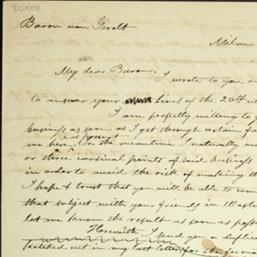 DCXXII
Baron von Gerolt
My dear Baron: I wrote to you
to answer your lines of the 20th
I am perfectly willing to
business as soon as I get through certain
me here. In the meantime I naturally
or three cardinal points of said business
in order to avoid the risk of making
I hope & trust that you will be able to
that subject with your friends in
let me know the result as soon as
Herewith I send you a duplicate
in my last letter for the